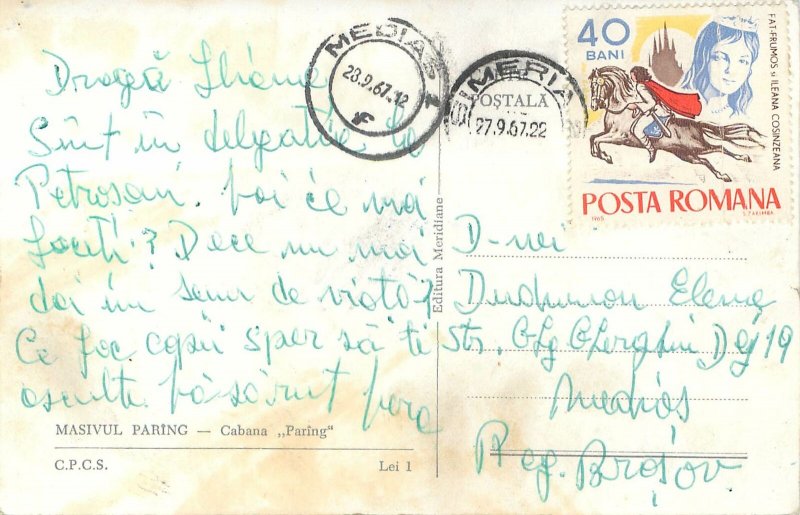 Dragă Iliana
Sînt în delgatie la
Petroșani. Voi ce mai
faceți? Dece nu mai
dai un semn de viață?
Ce fac copii sper să te
asculte. Vă sărut
MASIVUL PARÎNG — Cabana „Parîng"
C.P.C.S. Lei 1
Editura Meridiane
MEDIAȘ
28.9.67.12
SIMERIA
POȘTALĂ
27.9.67.22
40
BANI
FĂT-FRUMOS și ILEANA COSINZEANA
POSTA ROMANA
1965
D-nei
Elena
Str. Gh Gheorghiu Dej 19
Mediaș
Reg. Brașov